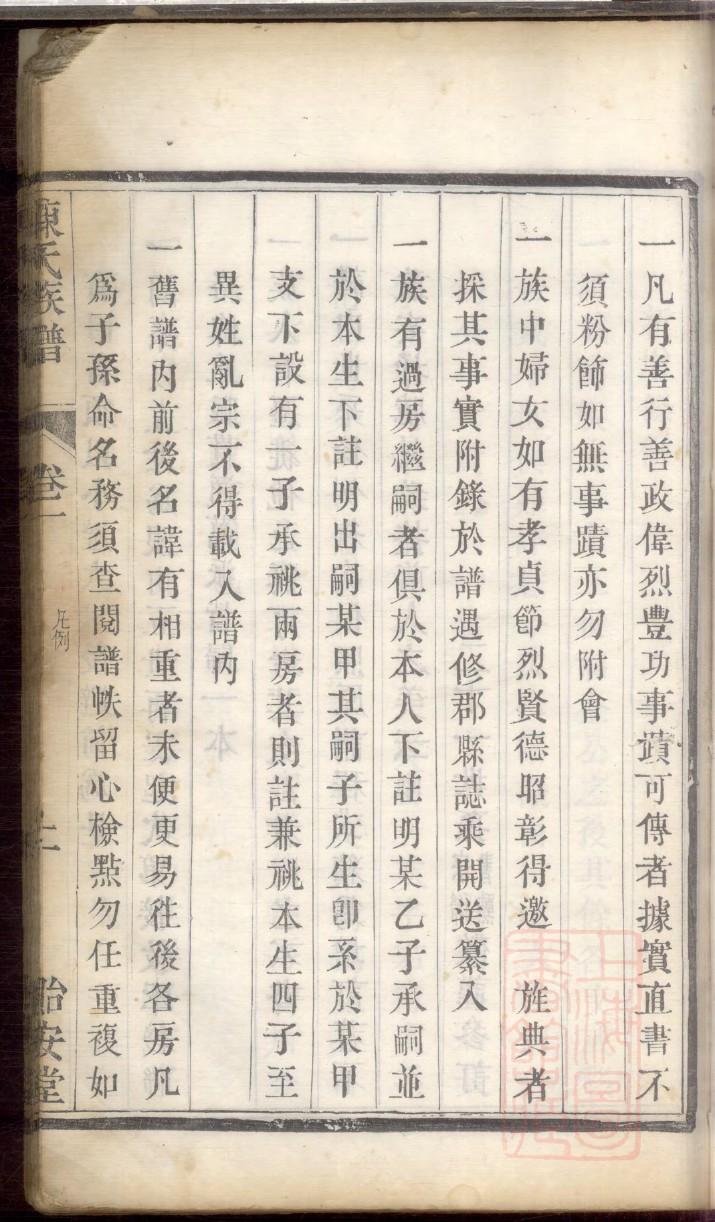 一凡有善行善政偉烈豐功事蹟可傳者據實直書不
須粉飾如無事蹟亦勿附會
一族中婦女如有孝貞節烈賢德昭彰得邀　旌典者
採其事實附錄於譜遇修郡縣誌乘開送纂入
一族有過房繼嗣者俱於本人下註明某乙子承嗣並
於本生下註明出嗣某甲其嗣子所生卽系於某甲
支下設有一子承祧兩房者則註兼祧本生四子至
異姓亂宗不得載入譜內
一舊譜內前後名諱有相重者未便更易徃後各房凡
爲子孫命名務須查閱譜帙留心檢點勿任重複如
陳氏族譜
卷一
凡例
十一
貽安堂